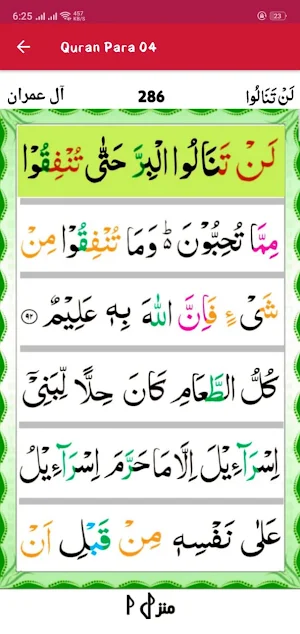 6:25 457 KB/S 23
Quran Para 04
آل عمران 286 لَنْ تَنَالُوا
لَنْ تَنَالُوا الْبِرَّ حَتّٰى تُنْفِقُوْا
مِمَّا تُحِبُّوْنَ ؕ وَمَا تُنْفِقُوْا مِنْ
شَیْءٍ فَاِنَّ اللّٰهَ بِهٖ عَلِیْمٌ ۹۲
كُلُّ الطَّعَامِ كَانَ حِلًّا لِّبَنِیْۤ
اِسْرَآءِیْلَ اِلَّا مَا حَرَّمَ اِسْرَآءِیْلُ
عَلٰى نَفْسِهٖ مِنْ قَبْلِ اَنْ
منزل ۱